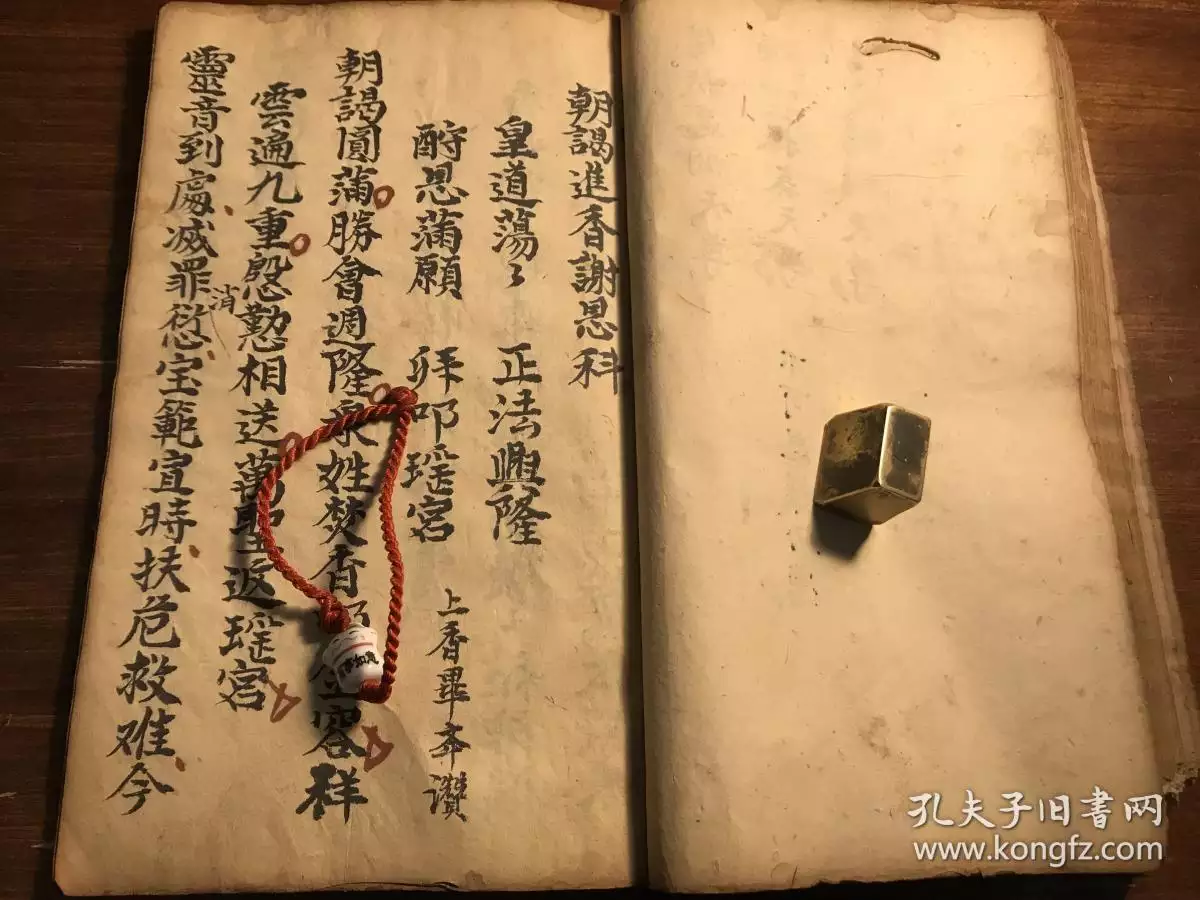 朝謁進香謝恩科
皇道蕩々 正法興隆
酧恩蒲願 拜叩瑶宮 上香畢夲讚
朝謁圓蒲勝會週隆衆姓焚香金容祥
雲遍九重慇懃相送萬聖返瑶宮
靈音到處滅罪消愆宝範宣時扶危救难今
如意
孔夫子旧書网
www.kongfz.com